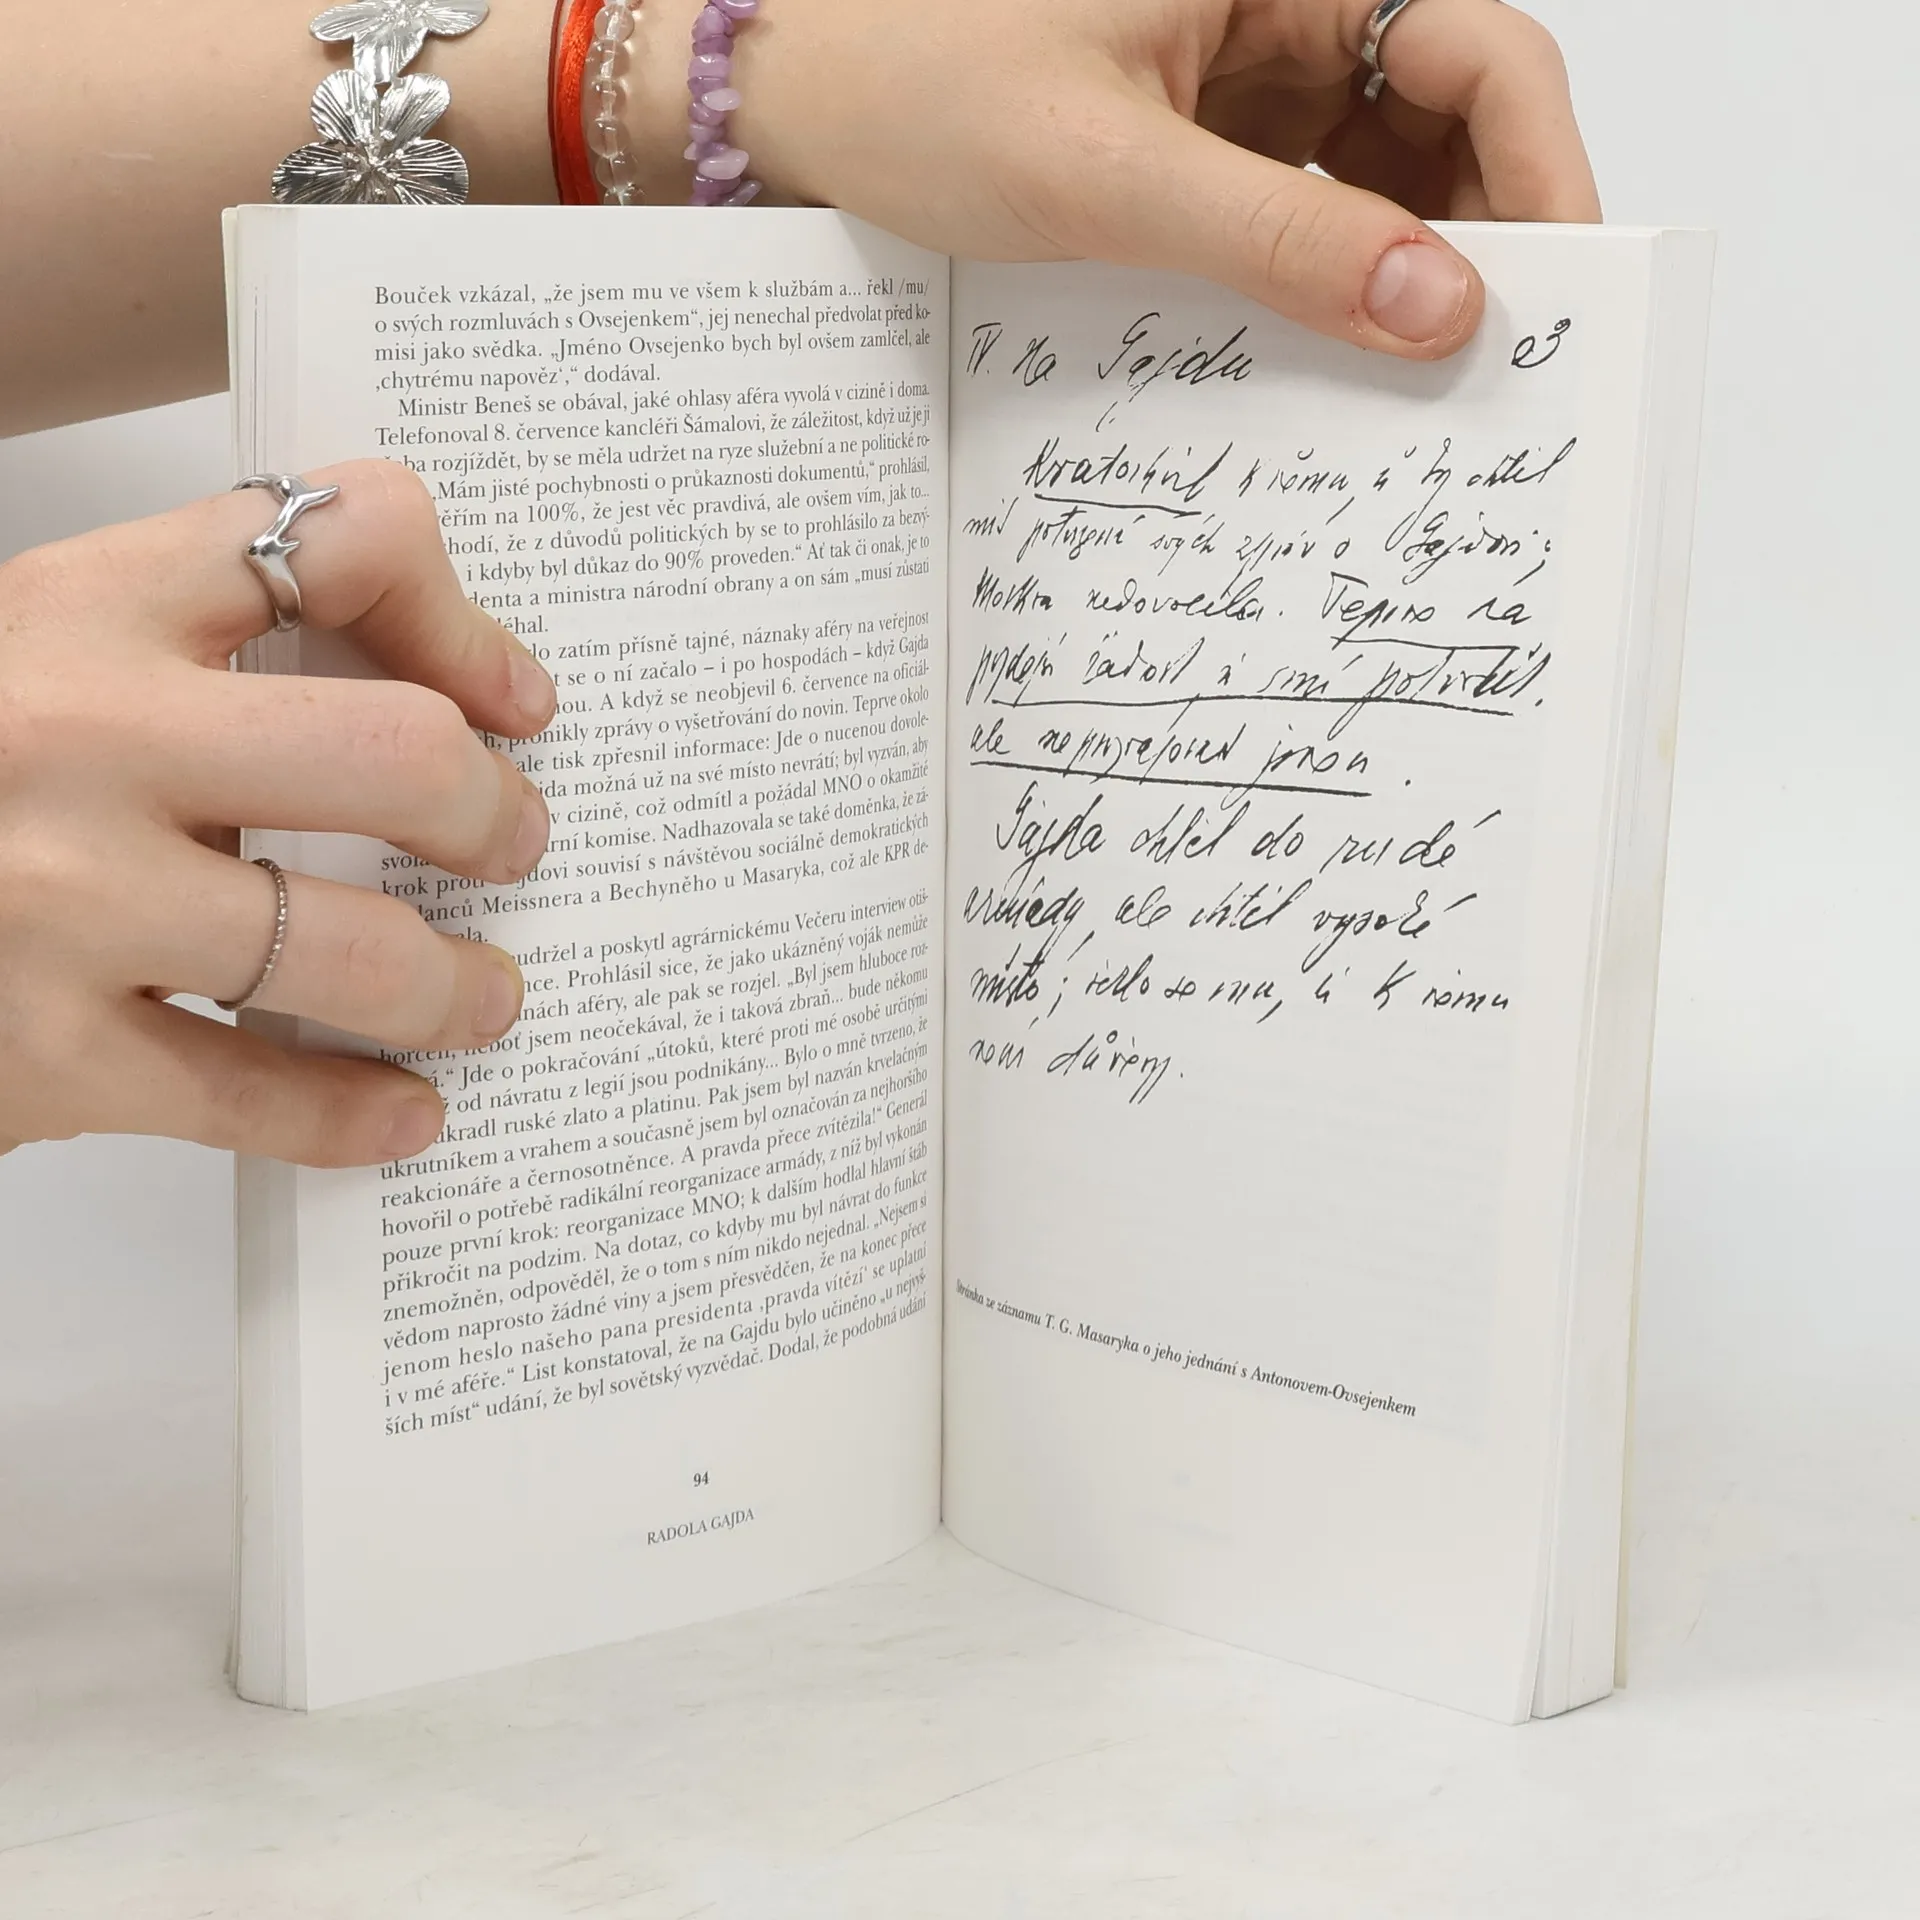 Bouček vzkázal, „že jsem mu ve všem k službám a... řekl /mu/
o svých rozmluvách s Ovsejenkem“, jej nenechal předvolat před ko-
misi jako svědka. „Jméno Ovsejenko bych byl ovšem zamlčel, ale
‚chytrému napověz‘,“ dodával.
Ministr Beneš se obával, jaké ohlasy aféra vyvolá v cizině i doma.
Telefonoval 8. července kancléři Šámalovi, že záležitost, když už je ji
rozjíždět, by se měla udržet na ryze služební a ne politické ro-
„Mám jisté pochybnosti o průkaznosti dokumentů,“ prohlásil,
na 100%, že jest věc pravdivá, ale ovšem vím, jak to...
že z důvodů politických by se to prohlásilo za bezvý-
i kdyby byl důkaz do 90% proveden.“ Ať tak či onak, je to
a ministra národní obrany a on sám „musí zůstati
zatím přísně tajné, náznaky aféry na veřejnost
se o ní začalo – i po hospodách – když Gajda
A když se neobjevil 6. července na oficiál-
pronikly zprávy o vyšetřování do novin. Teprve okolo
ale tisk zpřesnil informace: Jde o nucenou dovole-
možná už na své místo nevrátí; byl vyzván, aby
v cizině, což odmítl a požádal MNO o okamžité
komise. Nadhazovala se také doměnka, že zá-
krok proti souvisí s návštěvou sociálně demokratických
Meissnera a Bechyněho u Masaryka, což ale KPR de-
a poskytl agrárnickému Večeru interview otiš-
Prohlásil sice, že jako ukázněný voják nemůže
aféry, ale pak se rozjel. „Byl jsem hluboce roz-
neboť jsem neočekával, že i taková zbraň... bude někomu
Jde o pokračování „útoků, které proti mé osobě určitými
od návratu z legií jsou podnikány... Bylo o mně tvrzeno, že
ruské zlato a platinu. Pak jsem byl nazván krvelačným
ukrutníkem a vrahem a současně jsem byl označován za nejhoršího
reakcionáře a černosotněnce. A pravda přece zvítězila!“ Generál
hovořil o potřebě radikální reorganizace armády, z níž byl vykonán
pouze první krok: reorganizace MNO; k dalším hodlal hlavní štáb
přikročit na podzim. Na dotaz, co kdyby mu byl návrat do funkce
znemožněn, odpověděl, že o tom s ním nikdo nejednal. „Nejsem si
vědom naprosto žádné viny a jsem přesvědčen, že na konec přece
jenom heslo našeho pana presidenta ‚pravda vítězí‘ se uplatní
i v mé aféře.“ List konstatoval, že na Gajdu bylo učiněno „u nejvyš-
ších míst“ udání, že byl sovětský vyzvědač. Dodal, že podobná udání
94
RADOLA GAJDA
IV. Na Gajdu
23
Kratochvíl k němu, by chtěl
míť potvrzení svých zpráv o Gajdovi;
Moskva nedovolila. Teprve na
žádost, smí potvrdit,
ale
Gajda chtěl do rudé
armády, ale chtěl vysoké
místo; řeklo se mu, k němu
není důvěry.
Stránka ze záznamu T. G. Masaryka o jeho jednání s Antonovem-Ovsejenkem